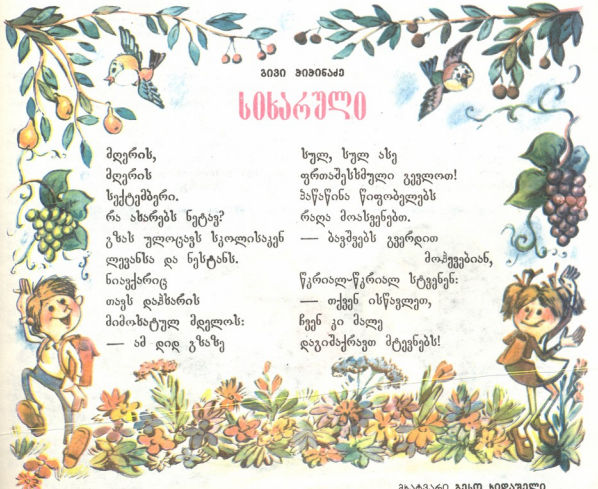 გივი ჭიჭინაძე
სიხარული
მღერის,
მღერის
სექტემბერი.
რა ახარებს ნეტავ?
გზას ულოცავს სკოლისაკენ
ლევანსა და ნესტანს.
ნიავქარიც
თავს დაჰხარის
მიმოხატულ მდელოს:
— ამ დიდ გზაზე
სულ, სულ ასე
ფრთაშესხმული გევლოთ!
პაწაწინა წიფობელებს
რაღა მოასვენებთ.
— ბავშვებს გვერდით
მოჰყვებიან,
წკრიალ-წკრიალ სტვენენ:
— თქვენ ისწავლეთ,
ჩვენ კი მალე
დაგიშაქრავთ მტევნებს!
მხატვარი